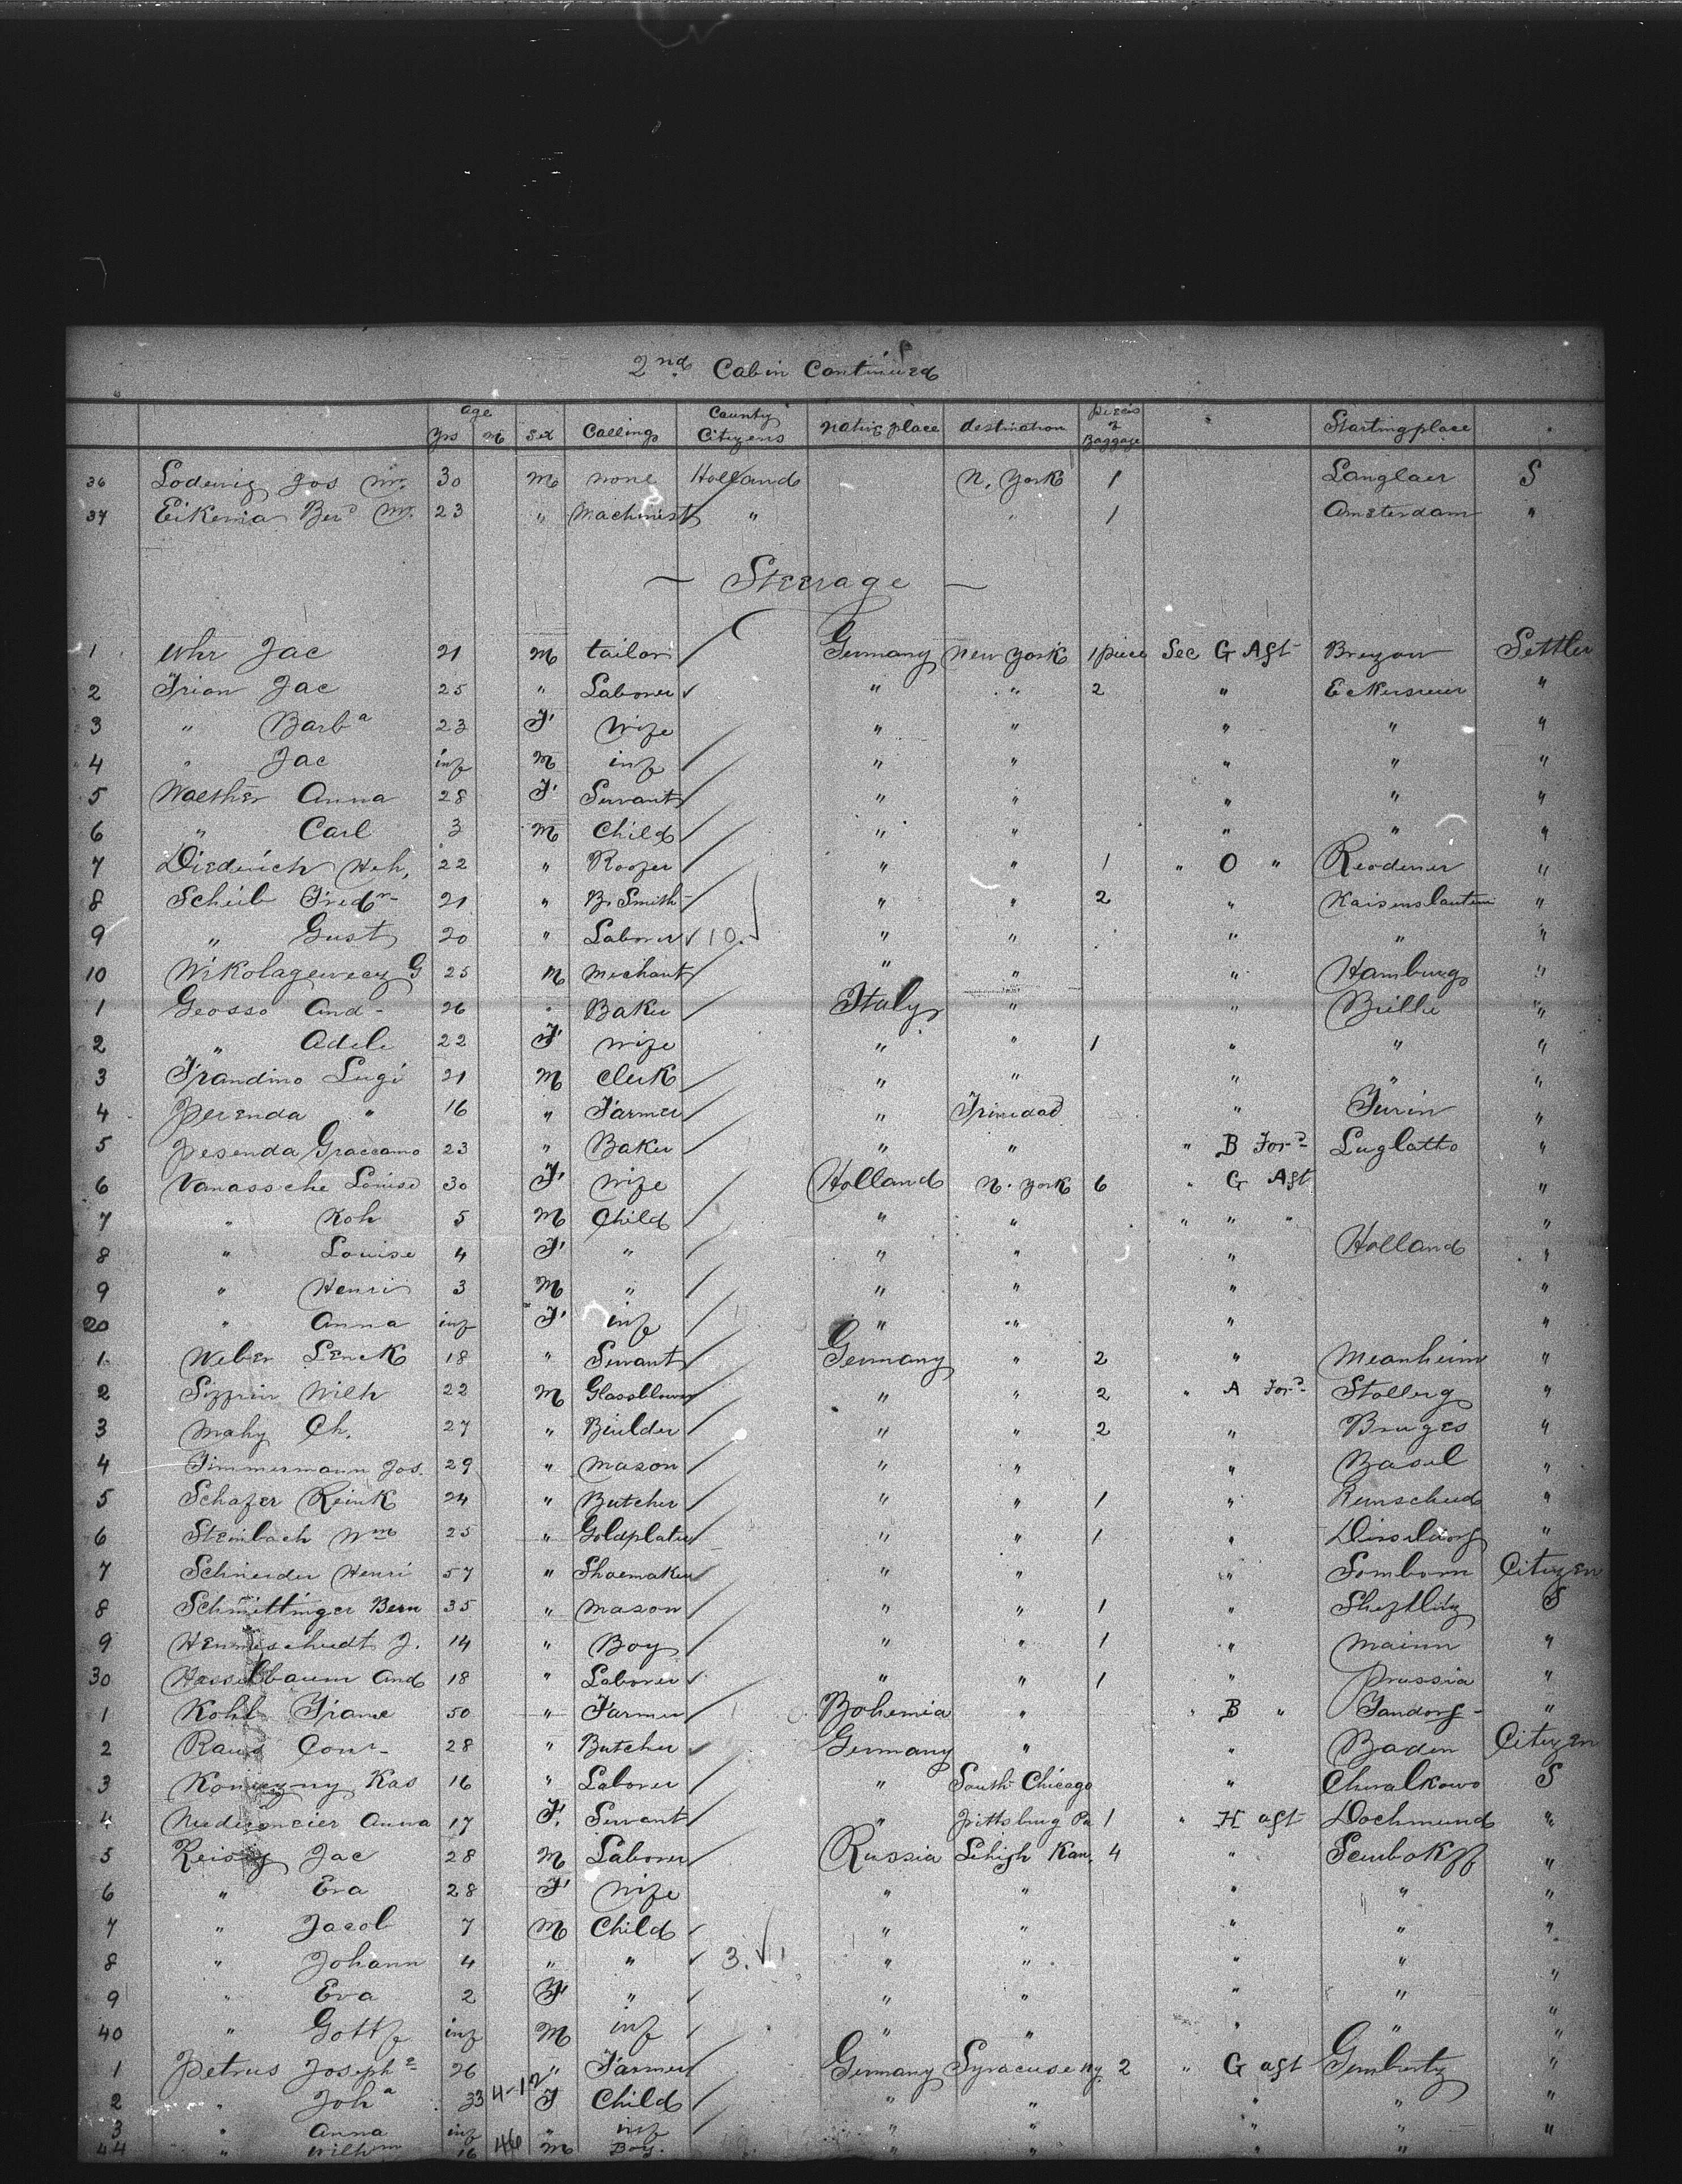 2nd Cabin Continued
Age Yrs M Sex Calling County Citizens native place destination pieces of Baggage Starting place
36 Lodewig Jos Mr. 30 M none Holland N. York 1 Langlaer S
37 Eikema Ber^d Mr. 23 " Machinist " " 1 Amsterdam "
Steerage
1 Uhr Jac 21 M tailor Germany New York 1 piece Sec G Aft Settler
2 Irion Jac 25 " Laborer " " 2 " "
3 " Barb^a 23 F Wife " " " " "
4 " Jac inf M inf " " " " "
5 Walther Anna 28 F Servant " " " " "
6 " Carl 3 M Child " " " " "
7 Diederich Hch. 22 " Roofer " " 1 " O " "
8 Scheib Fred 21 " B. Smith " " 2 " Kaiserslautern "
9 " Gust 20 " Laborer 10. " " " " "
10 G 25 M Mechant " " " Hamburg "
1 Geosso And 26 " Baker Italy " " "
2 " Adele 22 F Wife " " 1 " " "
3 Frandino Lugi 21 M Clerk " " " " "
4 Perenda " 16 " Farmer " Trinidad " Turin "
5 23 " Baker " " " B For^d Luglatto "
6 Vanassche Louise 30 F Wife Holland N. York 6 " G Aft "
7 " Koh 5 M Child " " " " " "
8 " Louise 4 F " " " " Holland "
9 " Henri 3 M " " " " "
20 " Anna inf F inf " " " "
1 Weber 18 " Servant Germany " 2 " Meanheim "
2 Wilh 22 M Glassblower " " 2 " A For^d Stollerg "
3 Mahy Ch. 27 " Builder " " 2 " Bruges "
4 Timmermann Jos. 29 " Mason " " " Basel "
5 Schafer Reink 24 " Butcher " " 1 " Remscheid "
6 Steinbach Wm 25 " Goldplater " " 1 " "
7 Schneider Henri 57 " Shoemaker " " " Somborn Citizen
8 Schmittinger Bern 35 " Mason " " 1 " S
9 J. 14 " Boy " " 1 " "
30 Hasselbaum And 18 " Laborer " " 1 " Prussia "
1 Kohl Franz 50 " Farmer Bohemia " " B " "
2 28 " Butcher Germany " " Baden Citizen
3 Kas 16 " Laborer " South Chicago " Chwalkowo S
4 Anna 17 F. Servant " Pittsburg Pa 1 " H aft Dochmund "
5 Jac 28 M Laborer Russia Lehigh Kan. 4 " "
6 " Eva 28 F Wife " " " " "
7 " Jacob 7 M Child " " " " "
8 " Johann 4 " " 3. " " " " "
9 " Eva 2 F " " " " " "
40 " Gottf inf M inf " " " " "
1 Petrus Joseph 26 " Farmer Germany Syracuse NY 2 " G aft "
2 " Joh^a 33 4-12 F Child " " " " "
3 " Anna inf " inf " " " " "
44 " Wilhm 16 46 M Boy. " " " " "